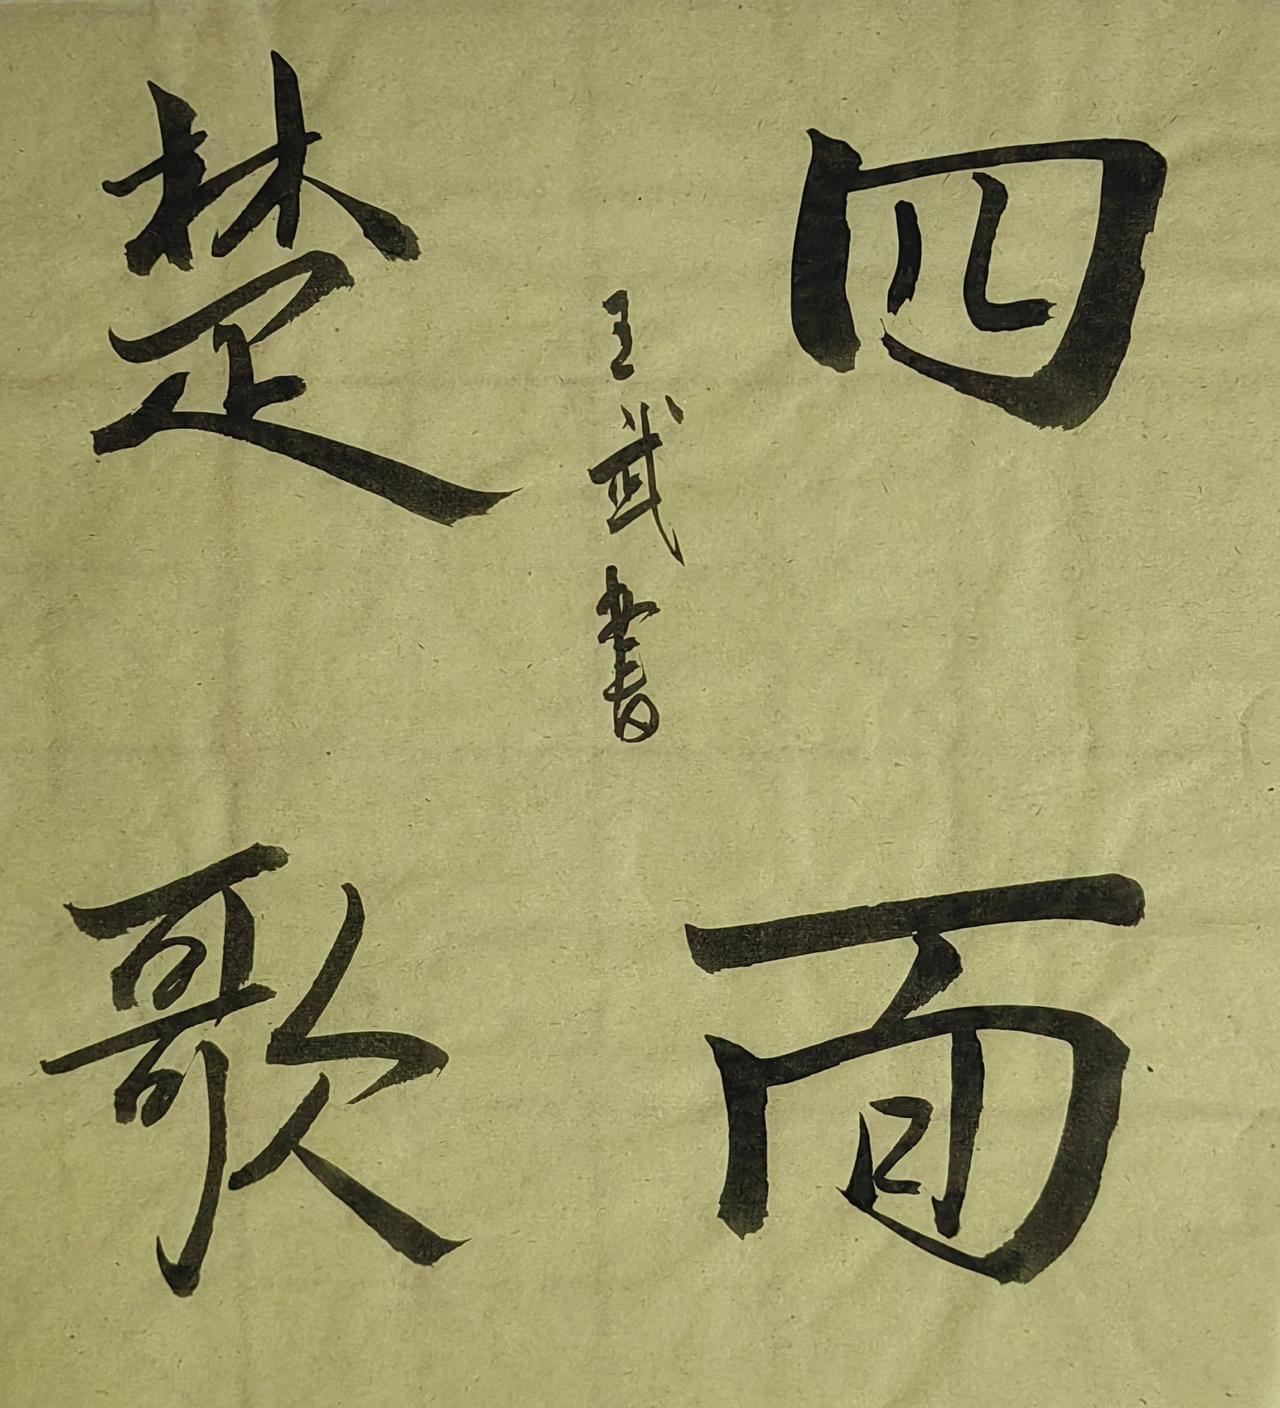 四面
楚歌
王武書